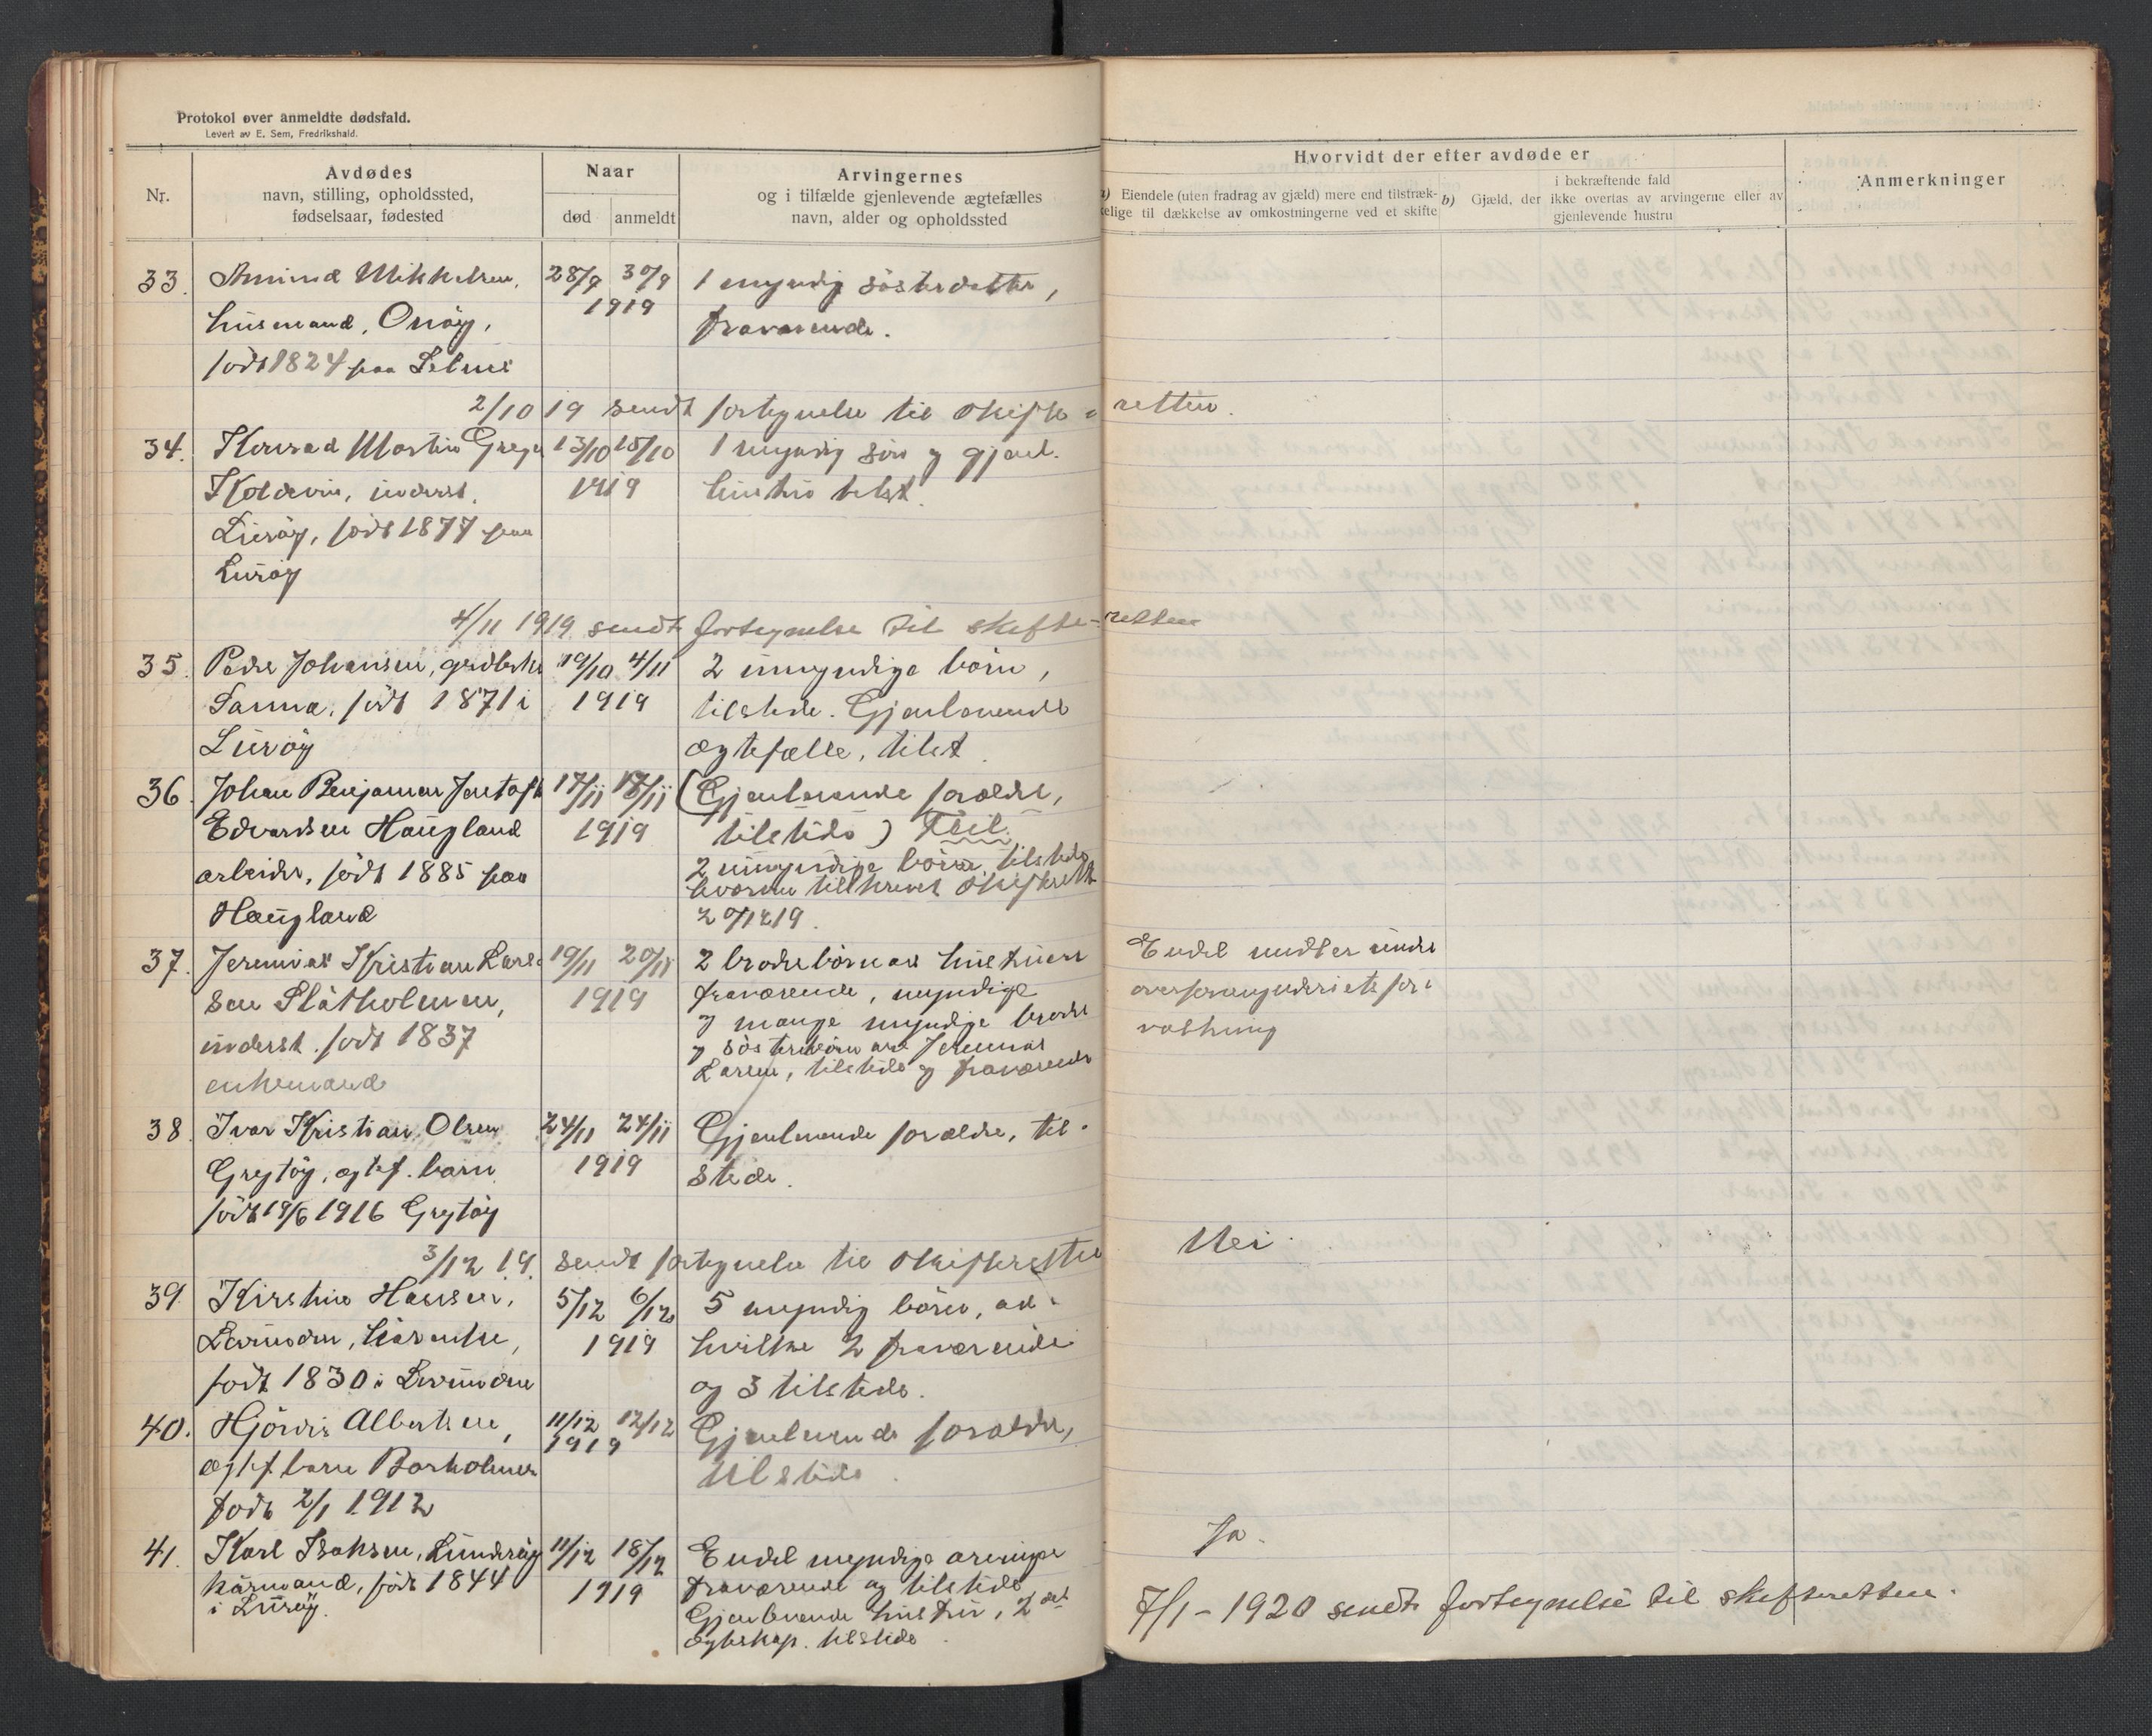 Protokol over anmeldte dødsfald.
Levert av E. Sem, Fredrikshald.
Nr.
Avdødes
navn, stilling, opholdssted,
fødselsaar, fødested
Naar
død
anmeldt
Arvingernes
og i tilfælde gjenlevende ægtefælles
navn, alder og opholdssted
Hvorvidt der efter avdøde er
a) Eiendele (uten fradrag av gjæld) mere end tilstræk-
kelige til dækkelse av omkostningerne ved et skifte
i bekræftende fald
b) Gjæld, der ikke overtas av arvingerne eller av
gjenlevende hustru
Anmerkninger
33. Amund Mikkelsen, 28/9 30/9 1 myndig søsterdatter,
husmand, Onøy, 1919 fraværende.
født 1824 paa Selnes
2/10 19 sendt fortegnelse til skifteretten.
34. Konrad Martin Greger 13/10 15/10 1 myndig søn og gjenl.
Koldevin, inderst, 1919 hustru tilst.
Lurøy, født 1877 paa
Lurøy
4/11 1919 sendt fortegnelse til skifte-retten
35. Peder Johansen, grdbrker 19/10 4/11 2 umyndige børn,
Sanna, født 1871 i 1919 tilstede. Gjenlevende
Lurøy ægtefælle, tilst.
36. Johan Benjamin Jentoft 17/11 18/11 (Gjenlevende forældre,
Edvardsen Haugland 1919 tilstede) Feil.
arbeider, født 1885 paa 2 umyndige børn, tilstede
Haugland hvorom tilskrevet skifterett
20/12 19.
37. Jeremias Kristian Lars- 19/11 20/11 2 broderbørn av hustruen
sen Slåtholmen, 1919 fraværende, myndige
inderst. født 1837 og mange myndige broder
enkemand og søsterbørn av Jeremias
Larsen, tilstede og fraværende
Endel midler under
overformynderiets for-
valtning
38. Ivar Kristian Olsen 24/11 24/11 Gjenlevende forældre, til-
Grytøy, ægtef. barn 1919 stede.
født 19/6 1916 Grytøy
3/12 19. sendt fortegnelse til skifteretten
Nei.
39. Kirstine Hansen, 5/12 6/12 5 myndig børn, av
Lovunden, kårenke, 1919 hvilke 2 fraværende
født 1830 i Lovunden og 3 tilstede.
40. Hjördis Albertsen, 11/12 12/12 Gjenlevende forældre,
ægtef. barn Borholmen 1919 tilstede.
født 2/1 1912
41. Karl Isaksen, Lunderøy 11/12 18/12 Endel myndige arvinger
kårmand, født 1844 1919 fraværende og tilstede
i Lurøy. Gjenlevende hustru, 2det
ægteskap. tilstede.
Ja.
7/1 - 1920 sendt fortegnelse til skifteretten.